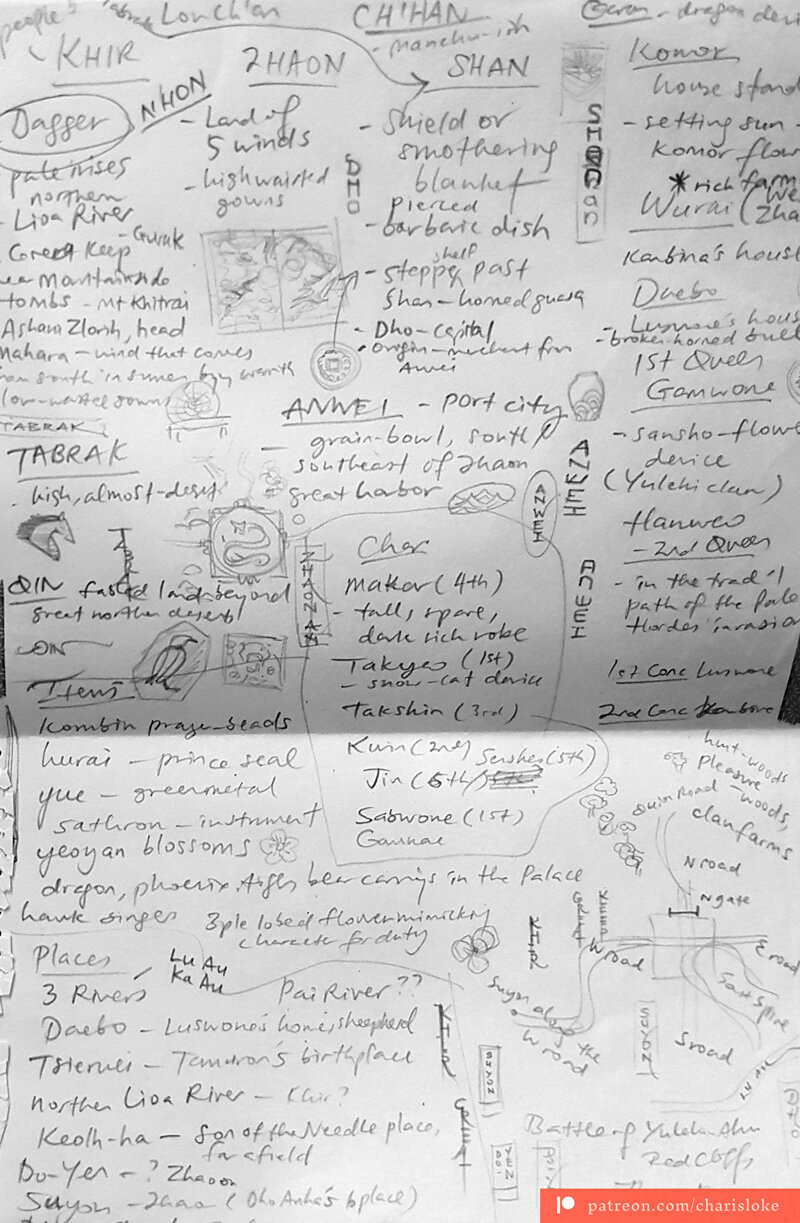 people's
Lonch'an
CH'HAN
- manchu-ish
Garan - dragon devi
KHIR
Dagger
NHON
pate rises
northern
- Lioa River
- Guruk
Great Keep
Mountainside
tombs - Mt Khitrai
Ashani Zlorsh, head
Mahara - wind that comes
from south in summer bring warmth
low-waisted gowns
TABRAK
TABRAK
- high, almost-desert
ZHAON
- Land of
5 winds
- highwaisted
gowns
SHAN
- Shield or
smothering
blanket
pierced
- barbaric dish
shelf
- steppe past
Shan - horned guasa
- Dho - capital
- Origin - merchant from
Anwei
DHO
Komor
house stand
- setting sun -
Komor flow
* rich farm
Wurai (
Zha
Kanbina's house
Daebo
- Luswone's hous
- broken-horned bull
1st Queen
Gamwone
- sansho-flower
device
(Yulehi clan)
Hanweo
- 2nd Queen
- in the trad'l
path of the Pale
Hordes' invasion
1st Conc Luswone
2nd Conc Kanbina
ANWEI - port city
- grain-bowl, south/
southeast of Zhaon
great harbor
ANWEI
ANWEI
ANWEI
ZHAONAN
QIN fabled land beyond
great northern desert
QIN
Char
Makar (4th)
- tall, spare,
dark rich robe
Takyeo (1st)
- snow-cat device
Takshin (3rd)
Kurin (2nd) Sensheo (5th)
Jin (6th)
Sabwone (1st)
Gamnae
Items
Kombin prayer-beads
hurai - prince seal
yue - greenmetal
sathron - instrument
yeoyan blossoms
dragon, phoenix, tiger, bear carvings in the Palace
hawk singer
3ple lobed flower mimicking
character for duty
hunt-woods
Pleasure
-woods,
clan farms
N road
N gate
W road
E road
S road
Suyon along the
W road
SUYON
SUYON
KHIR
KHIR
Places
Lu Au
Ka Au
3 Rivers
Pai River ??
Daebo - Luswone's home, shepherd
Tsierwei - Tamuron's birthplace
northern Lioa River - Khir?
Keolh-ha - Son of the Needle place,
far afield
Do-Yen - ? Zhaon
Suyon - Zhaon (Dho Anha's bplace)
Battle of
Red Cliffs
patreon.com/charisloke